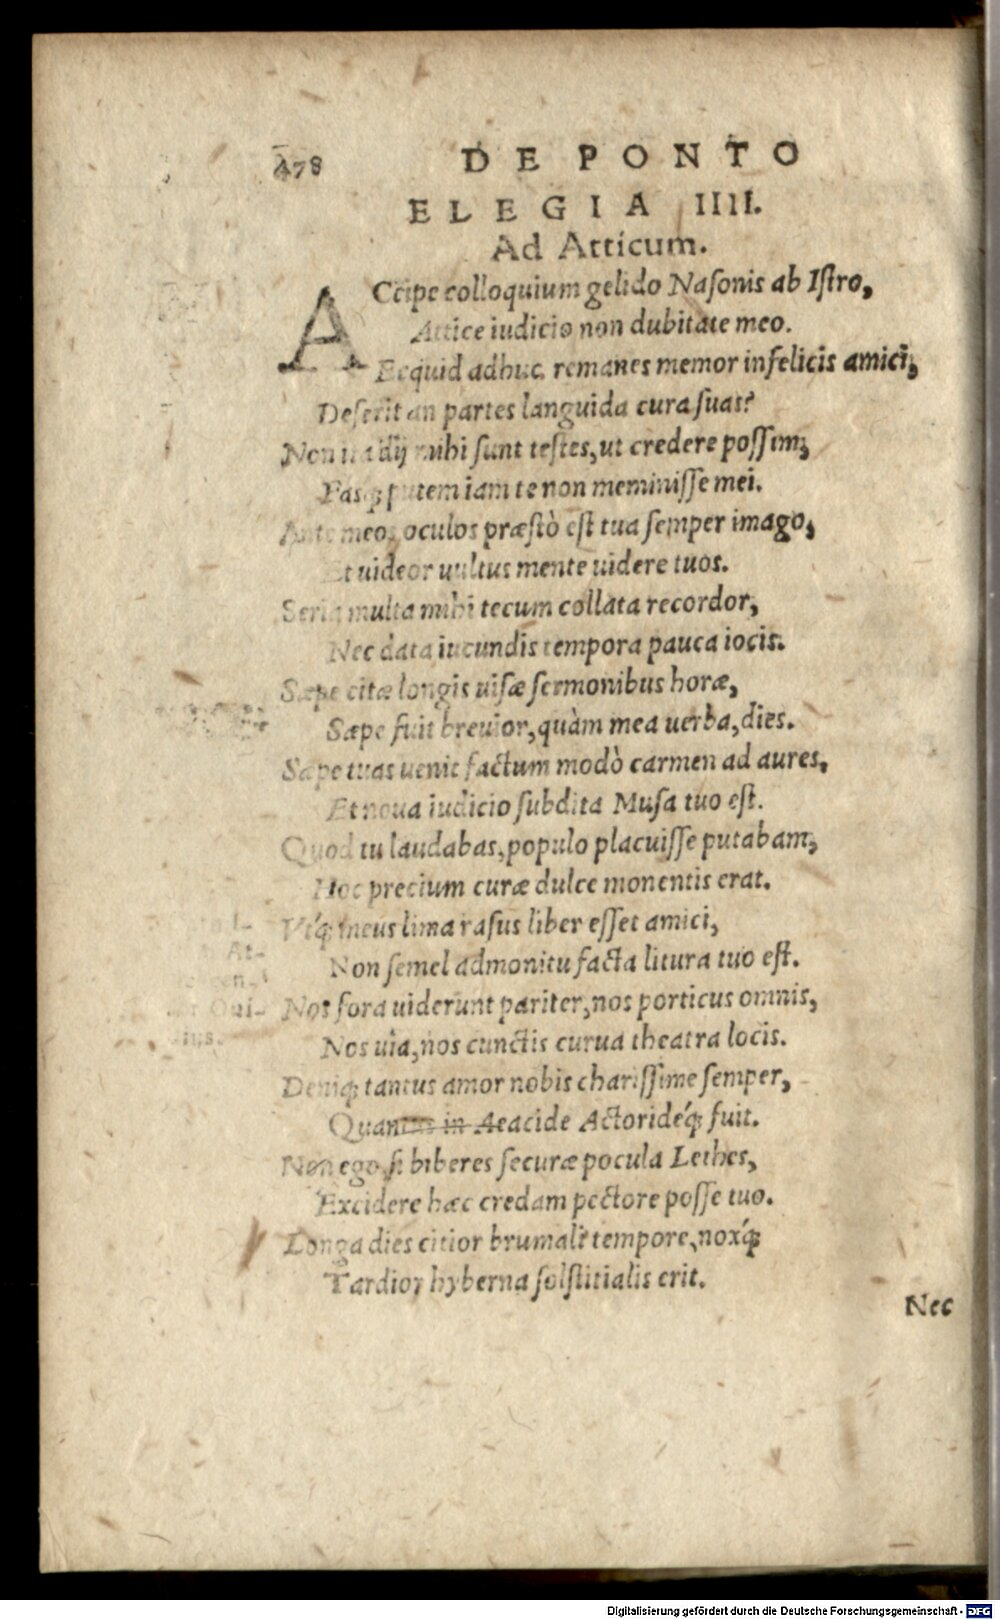 478 DE PONTO
ELEGIA IIII.
Ad Atticum.
ACcipe colloquium gelido Nasonis ab Istro,
Attice iudicio non dubitate meo.
Ecquid adhuc remanes memor infelicis amici,
Deserit an partes languida cura suas?
Non ita dij mihi sunt testes, ut credere possim,
Fasq; putem iam te non meminisse mei.
Ante meos oculos præstò est tua semper imago,
Et uideor uultus mente uidere tuos.
Seria multa mihi tecum collata recordor,
Nec data iucundis tempora pauca iocis.
Sæpe citæ longis uisæ sermonibus horæ,
Sæpe fuit breuior, quàm mea uerba, dies.
Sæpe tuas uenit factum modò carmen ad aures,
Et noua iudicio subdita Musa tuo est.
Quod tu laudabas, populo placuisse putabam,
Hoc precium curæ dulce monentis erat.
Vtq́; meus lima rasus liber esset amici,
Non semel admonitu facta litura tuo est.
Nos fora uiderunt pariter, nos porticus omnis,
Nos uia, nos cunctis curua theatra locis.
Deniq; tantus amor nobis charissime semper,
Quantus in Aeacide Actorideq́; fuit.
Non ego si biberes securæ pocula Lethes,
Excidere hæc credam pectore posse tuo.
Longa dies citior brumali tempore, noxq́;
Tardior hyberna solstitialis erit.
Nec
Digitalisierung gefördert durch die Deutsche Forschungsgemeinschaft - DFG